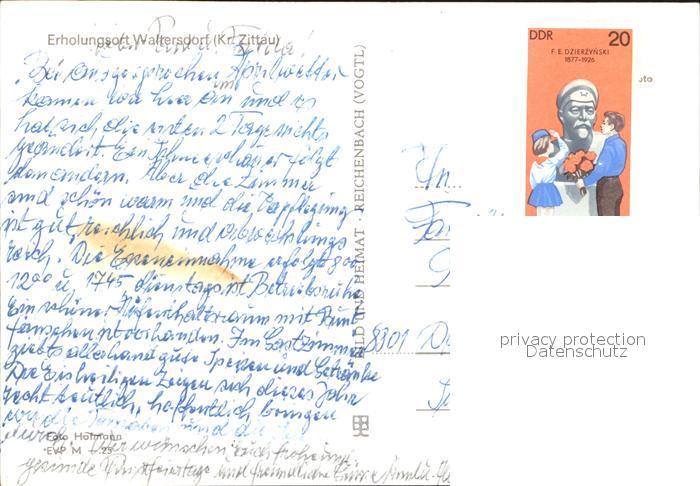 Erholungsort Waltersdorf (Kr. Zittau)
Bei ausgesprochen Aprilwetter
kamen wir hier an und es
hat sich die ersten 2 Tage nichts
geändert. Ein Schneeschauer folgt
dem andern. Aber die Zimmer
sind schön warm und die Verpflegung
ist gut, reichlich und abwechslungs
reich. Die Esseneinnahme erfolgt
1200 u. 1745 dienstags ist Betriebsruhe
Ein schöner Aufenthaltsraum mit Bunt
fernsehen ist vorhanden. Im Gastzimmer
giebts allerhand gute Speisen und Getränke
Die Eisheiligen zeigen sich dieses Jahr
recht deutlich, hoffentlich
wir die und die
durch. Wir wünschen Euch frohe und
gesunde Pfingstfeiertage und freundliche Grüsse
Foto Hofmann
EVP M -.25
BILD UND HEIMAT REICHENBACH (VOGTL)
DDR 20
F. E. DZIERŻYŃSKI
1877-1926
oto
8301
privacy protection
Datenschutz